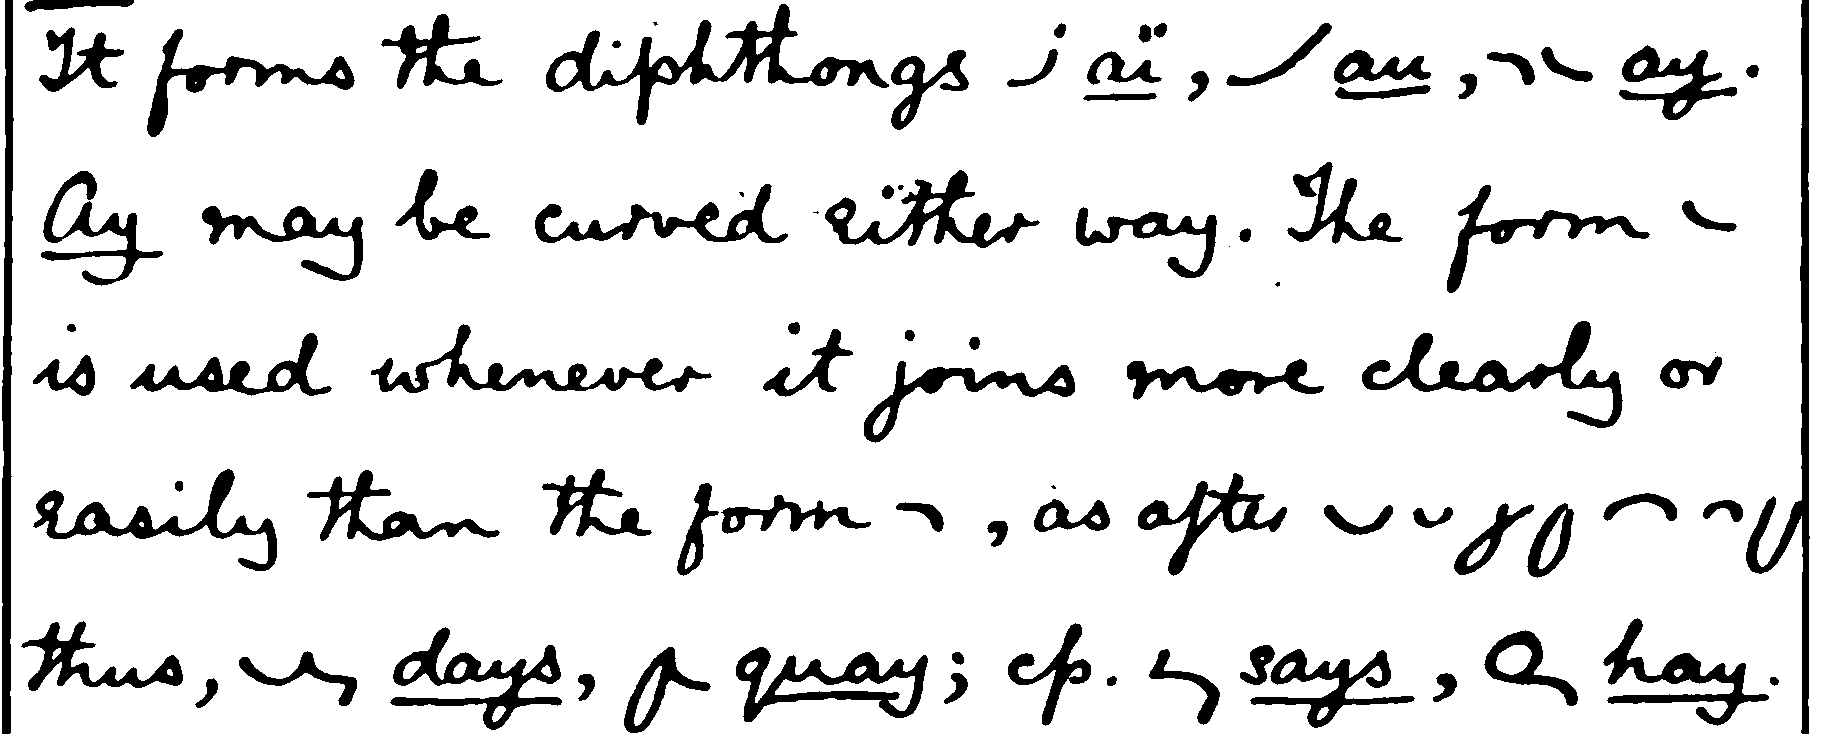 It forms the diphthongs aï, au, ay.
Ay may be curved eïther way. The form
is used whenever it joins more clearly or
easily than the form , as after
thus, days, quay; cp. says, hay.